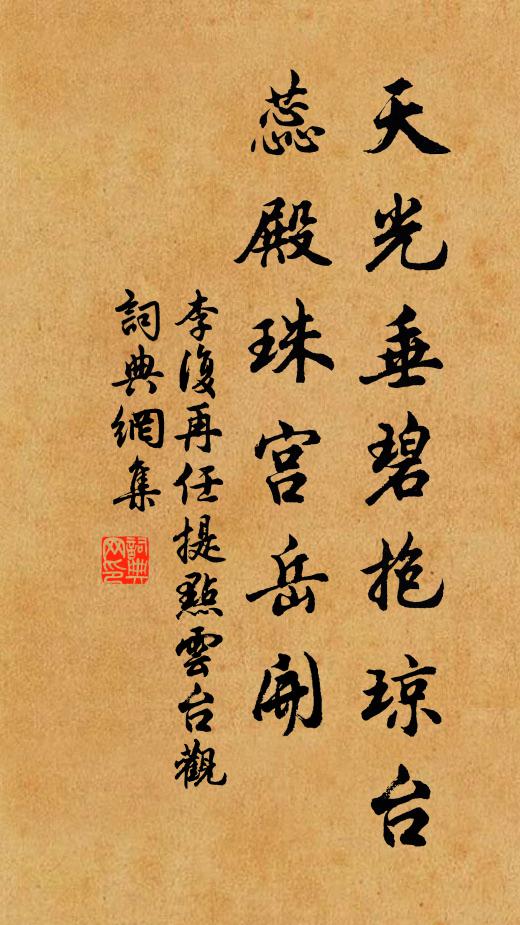 天光垂碧抱琼台
蕊殿珠宫岳開
李復再任提點雲台觀
詞典網集
詞典网印